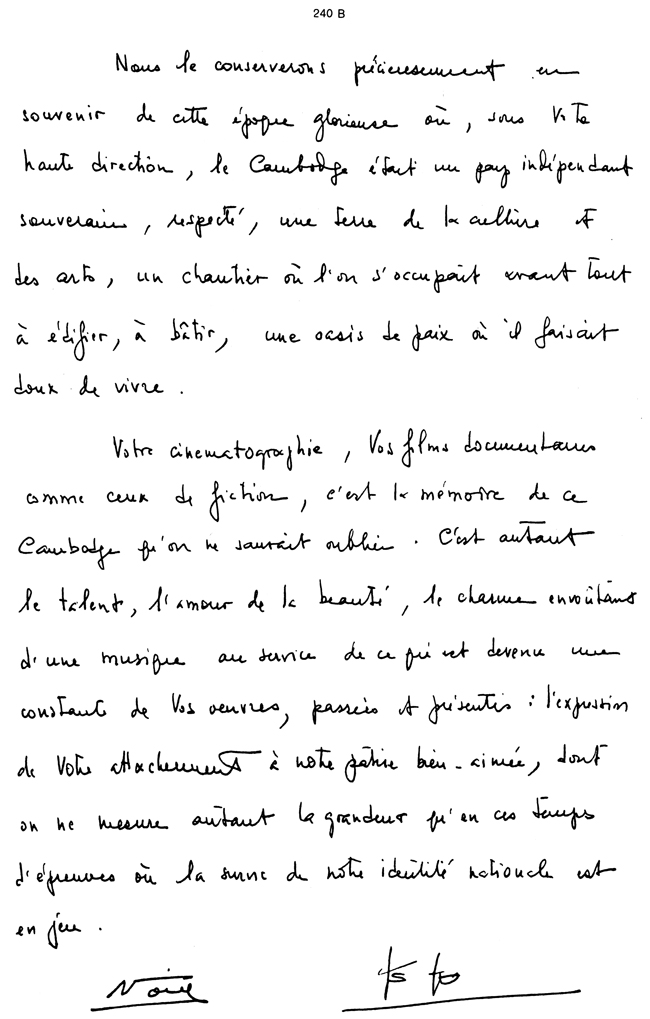 240 B
Nous le conserverons précieusement en
souvenir de cette époque glorieuse où, sous Votre
haute direction, le Cambodge était un pays indépendant
souverain, respecté, une terre de la culture et
des arts, un chantier où l'on s'occupait avant tout
à édifier, à bâtir, une oasis de paix où il faisait
doux de vivre.
Votre cinématographie, Vos films documentaires
comme ceux de fiction, c'est la mémoire de ce
Cambodge qu'on ne saurait oublier. C'est autant
le talent, l'amour de la beauté, le charme envoûtant
d'une musique au service de ce qui est devenu une
constante de Vos oeuvres, passées et présentes : l'expression
de Votre attachement à notre patrie bien-aimée, dont
on ne mesure autant la grandeur qu'en ces temps
d'épreuves où la survie de notre identité nationale est
en jeu.